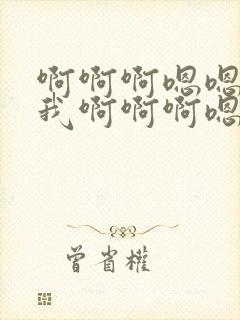 啊啊啊嗯嗯
我啊啊啊嗯
曾省權